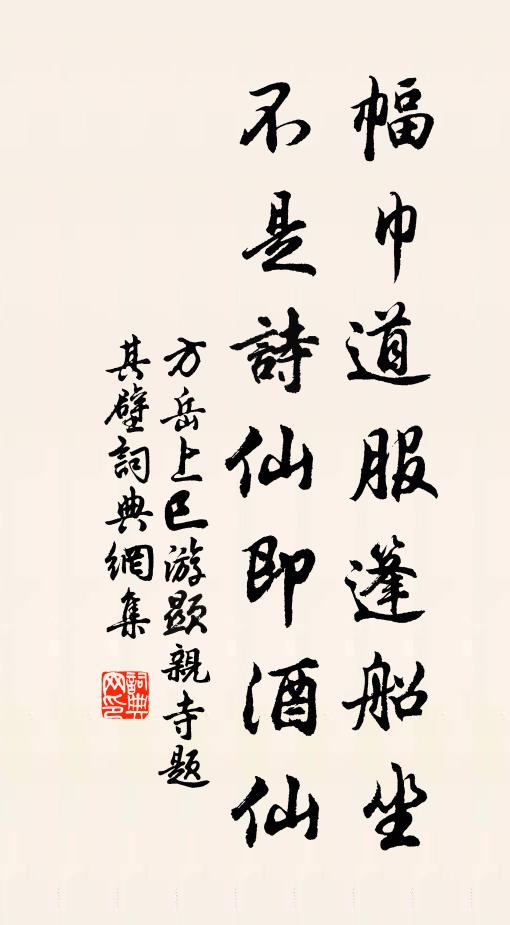 幅巾道服篷船坐
不是詩仙即酒仙
方岳上巳游顯親寺題
其壁詞典網集
詞典
网印